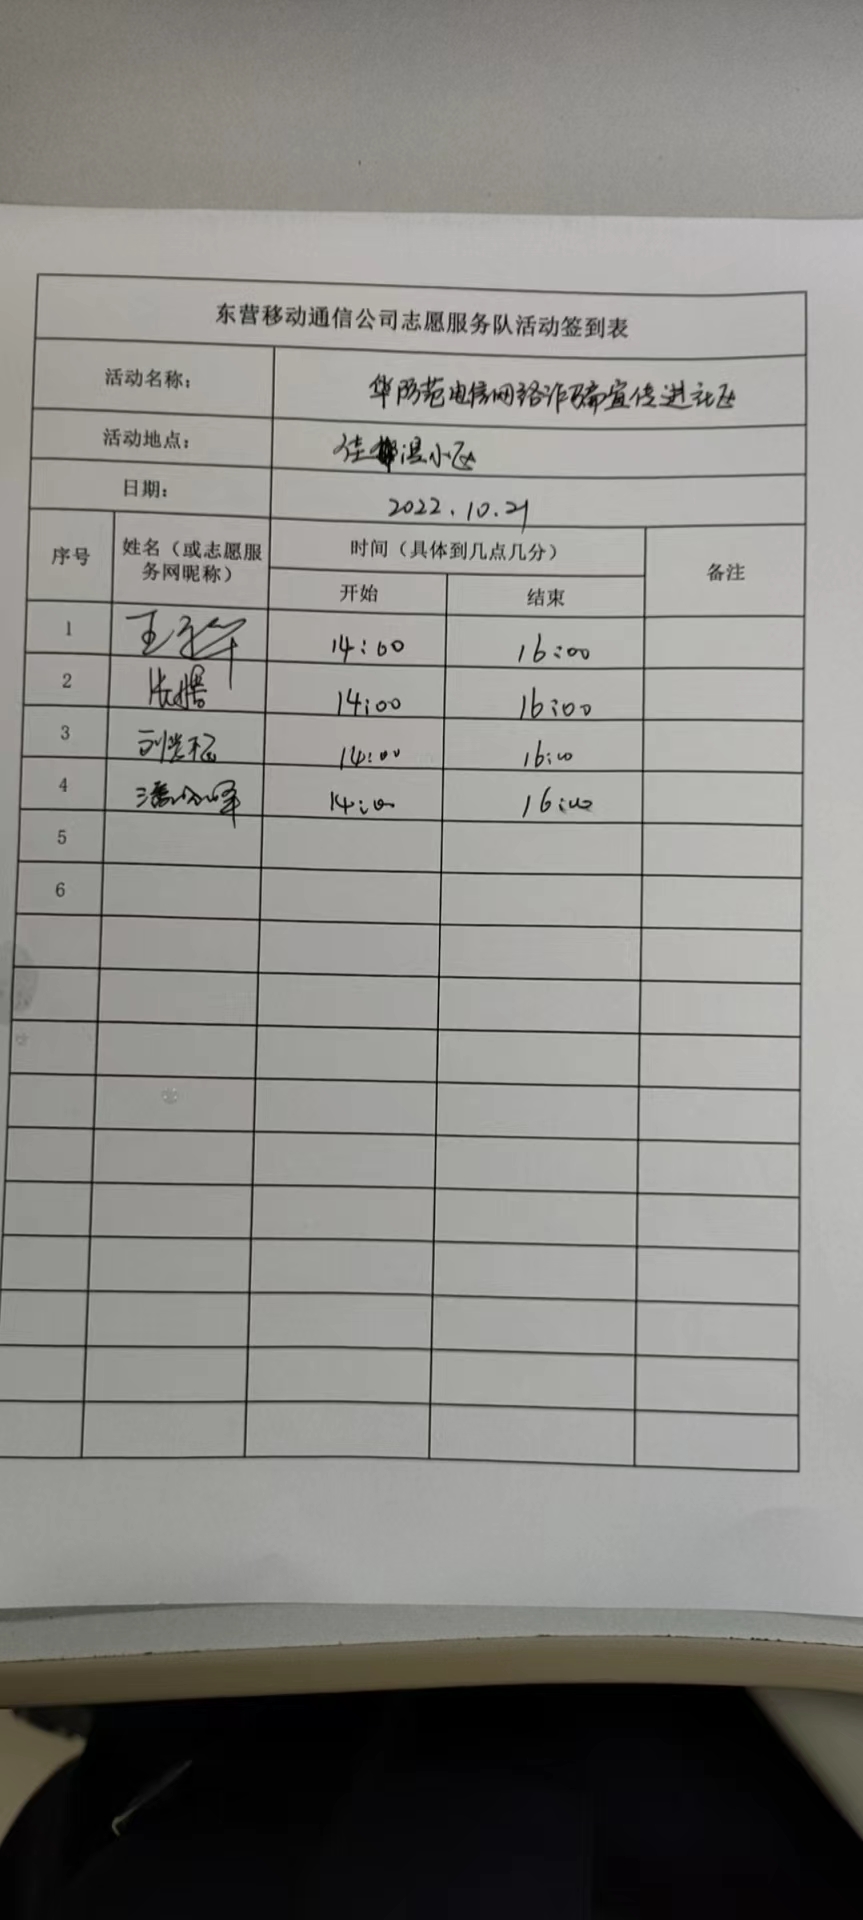 东营移动通信公司志愿服务队活动签到表
活动名称： 防范电信网络诈骗宣传进社区
活动地点： 佳 小区
日期： 2022.10.21
序号 姓名（或志愿服务网昵称） 时间（具体到几点几分） 备注
开始 结束
1 王 14:00 16:00
2 14:00 16:00
3 刘 14:00 16:00
4 潘 峰 14:00 16:00
5
6